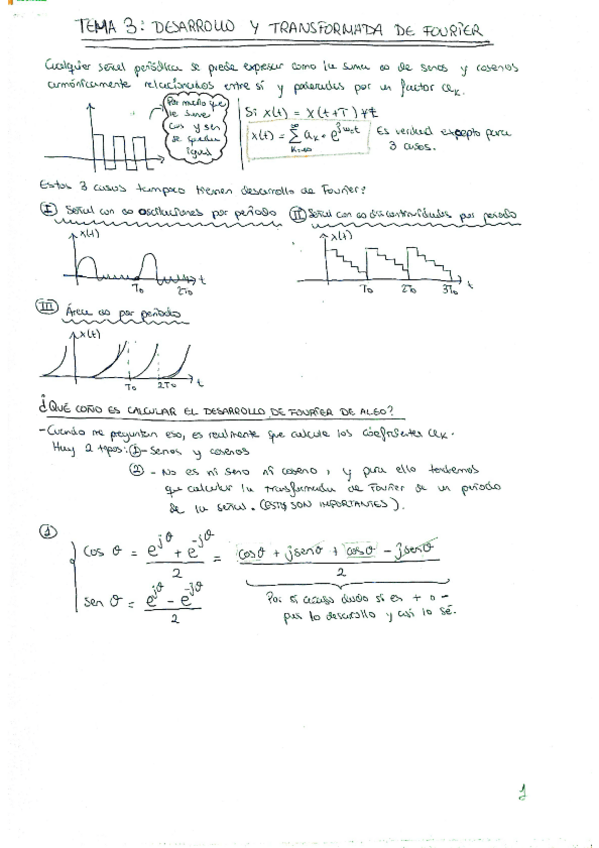 TEMA 3: DESARROLLO Y TRANSFORMADA DE FOURIER
Cualquier señal periódica se puede expresar como la suma ∞ de senos y cosenos
armónicamente relacionados entre sí y ponderados por un factor aₖ.
Por mucho que
le sume
cos y sen
se queda
igual
Si x(t) = x(t+T) ∀t
x(t) = ∑ aₖ · e^jω₀t
K=-∞
∞
Es verdad excepto para
3 casos.
Estos 3 casos tampoco tienen desarrollo de Fourier:
I Señal con ∞ oscilaciones por periodo
II Señal con ∞ discontinuidades por periodo
x(t)
T₀ 2T₀ t
x(t)
T₀ 2T₀ 3T₀ t
III Área ∞ por periodo
x(t)
T₀ 2T₀ t
¿QUÉ COÑO ES CALCULAR EL DESARROLLO DE FOURIER DE ALGO?
-Cuando me preguntan eso, es realmente que calcule los coeficientes aₖ.
Hay 2 tipos: ① - Senos y cosenos
② - No es ni seno ni coseno, y para ello tendremos
que calcular la transformada de Fourier de un periodo
de la señal. (ESTOS SON IMPORTANTES).
①
cos θ = (e^jθ + e^-jθ)/2 = (cosθ + jsenθ + cosθ - jsenθ)/2
sen θ = (e^jθ - e^-jθ)/2
Por si acaso dudo si es + o -
pues lo desarrollo y así lo sé.
1